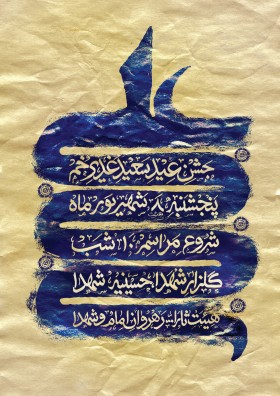 جشن عید سعید غدیر خم
پنجشنبه ۸ شهریور ماه
شروع مراسم ۱۰ شب
گلزار شهدا حسینیه شهدا
هیئت ثارالله رهروان امام و شهدا